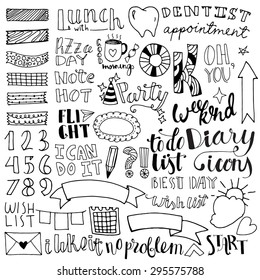 Lunch
with
DENTIST
appointment
PIZZA
DAY
morning
OK
OH
YOU
NOTE
HOT
Party
weekend
FLIGHT
todo
list
Diary
& icons
1 2 3
4 5 6
7 8 9
I CAN
DO IT
?!
BEST DAY
WISH
LIST
wish list
i like it
no problem
START
shutterstock
295575788